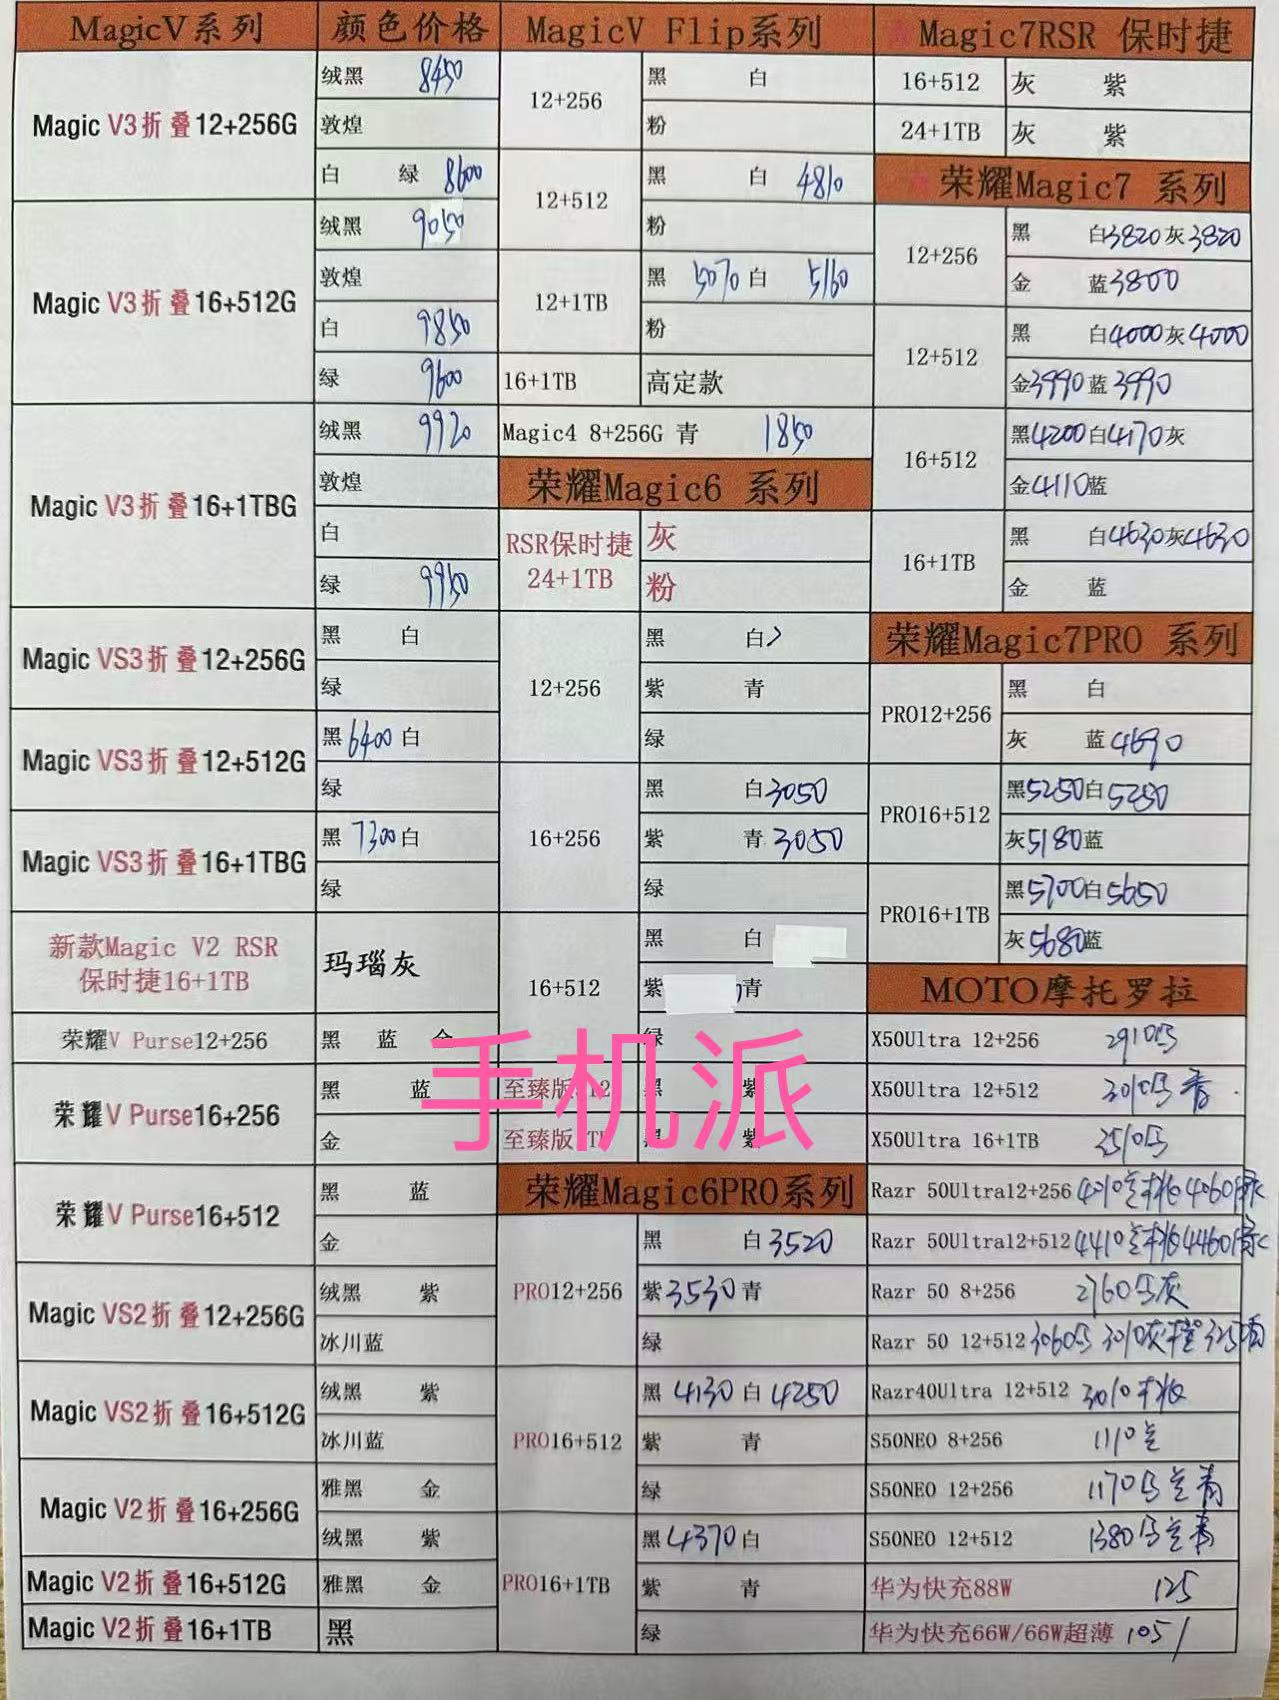 MagicV系列 颜色价格
Magic V3折叠12+256G
绒黑 8450
敦煌
白 绿 8600
Magic V3折叠16+512G
绒黑 9050
敦煌
白 9850
绿 9600
Magic V3折叠16+1TBG
绒黑 9920
敦煌
白
绿 9950
Magic VS3折叠12+256G
黑 白
绿
Magic VS3折叠12+512G
黑6400白
绿
Magic VS3折叠16+1TBG
黑 7300白
绿
新款Magic V2 RSR
保时捷16+1TB
玛瑙灰
荣耀V Purse12+256
黑 蓝 金
荣耀V Purse16+256
黑 蓝
金
荣耀V Purse16+512
黑 蓝
金
Magic VS2折叠12+256G
绒黑 紫
冰川蓝
Magic VS2折叠16+512G
绒黑 紫
冰川蓝
Magic V2折叠16+256G
雅黑 金
绒黑 紫
Magic V2折叠16+512G
雅黑 金
Magic V2折叠16+1TB
黑
MagicV Flip系列
12+256
黑 白
粉
12+512
黑 白 4810
粉
12+1TB
黑 5070 白 5160
粉
16+1TB 高定款
Magic4 8+256G 青 1850
荣耀Magic6 系列
RSR保时捷
24+1TB
灰
粉
12+256
黑 白
紫 青
绿
16+256
黑 白3050
紫 青3050
绿
16+512
黑 白
紫 青
绿
至臻版 黑 紫
至臻版 黑 紫
手机派
荣耀Magic6PRO系列
PRO12+256
黑 白3520
紫3530青
绿
PRO16+512
黑 4130 白 4250
紫 青
绿
PRO16+1TB
黑4370白
紫 青
绿
Magic7RSR 保时捷
16+512 灰 紫
24+1TB 灰 紫
荣耀Magic7 系列
12+256
黑 白3820灰3820
金 蓝3800
12+512
黑 白4000灰4000
金3990蓝3990
16+512
黑4200白4170灰
金4110蓝
16+1TB
黑 白4630灰4630
金 蓝
荣耀Magic7PRO 系列
PRO12+256
黑 白
灰 蓝4690
PRO16+512
黑5250白5250
灰5180蓝
PRO16+1TB
黑5700白5650
灰5680蓝
MOTO摩托罗拉
X50Ultra 12+256 2910
X50Ultra 12+512 3010 青
X50Ultra 16+1TB
Razr 50Ultra12+256
Razr 50Ultra12+512 4410 4460
Razr 50 8+256 2760 灰
Razr 50 12+512 3060
Razr40Ultra 12+512 3010
S50NEO 8+256 1110
S50NEO 12+256 1170 青
S50NEO 12+512 1380 青
华为快充88W 125
华为快充66W/66W超薄 105